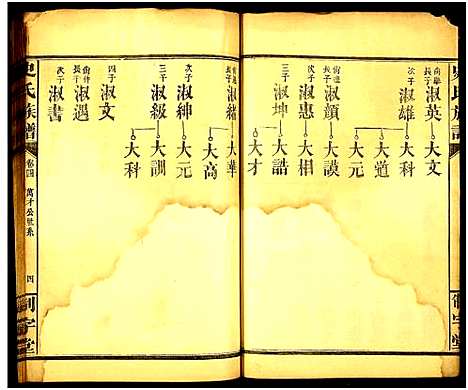 史氏族譜
尙舉長子 淑英 大文
次子 淑雄 大科
大道
大元
尙德長子 淑顏 大謨
次子 淑惠 大相
三子 淑坤 大誥
大才
淑 大華
大高
次子 淑紳 大元
三子 淑級 大訓
大科
四子 淑文
長子 淑遇
次子 淑書
史氏族譜 卷四 萬才公世系 四